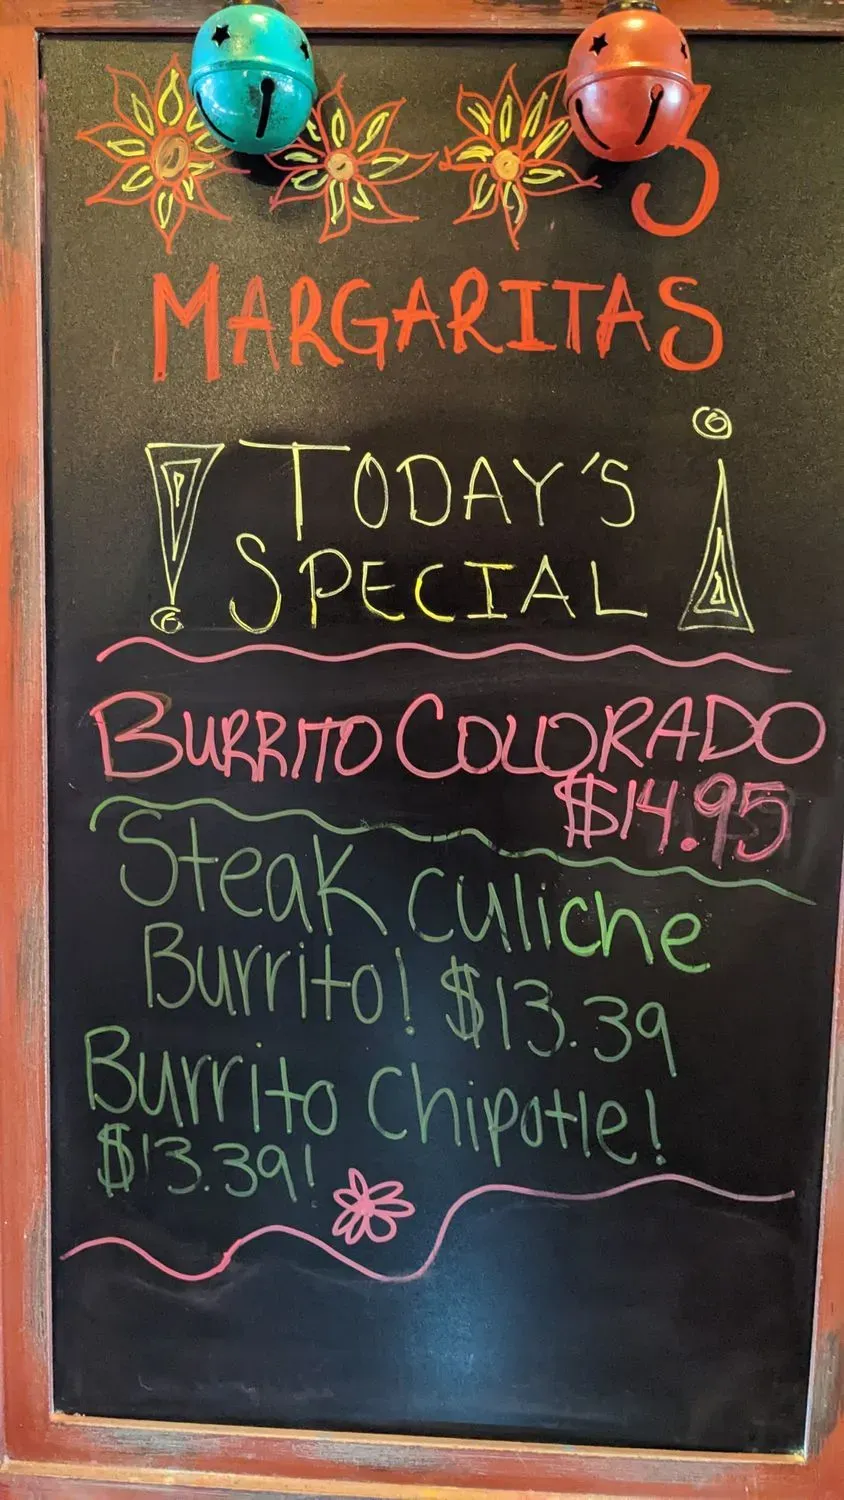 3
MARGARITAS
! TODAY'S
SPECIAL ¡
BURRITO COLORADO
$14.95
Steak Culiche
Burrito! $13.39
Burrito Chipotle!
$13.39!